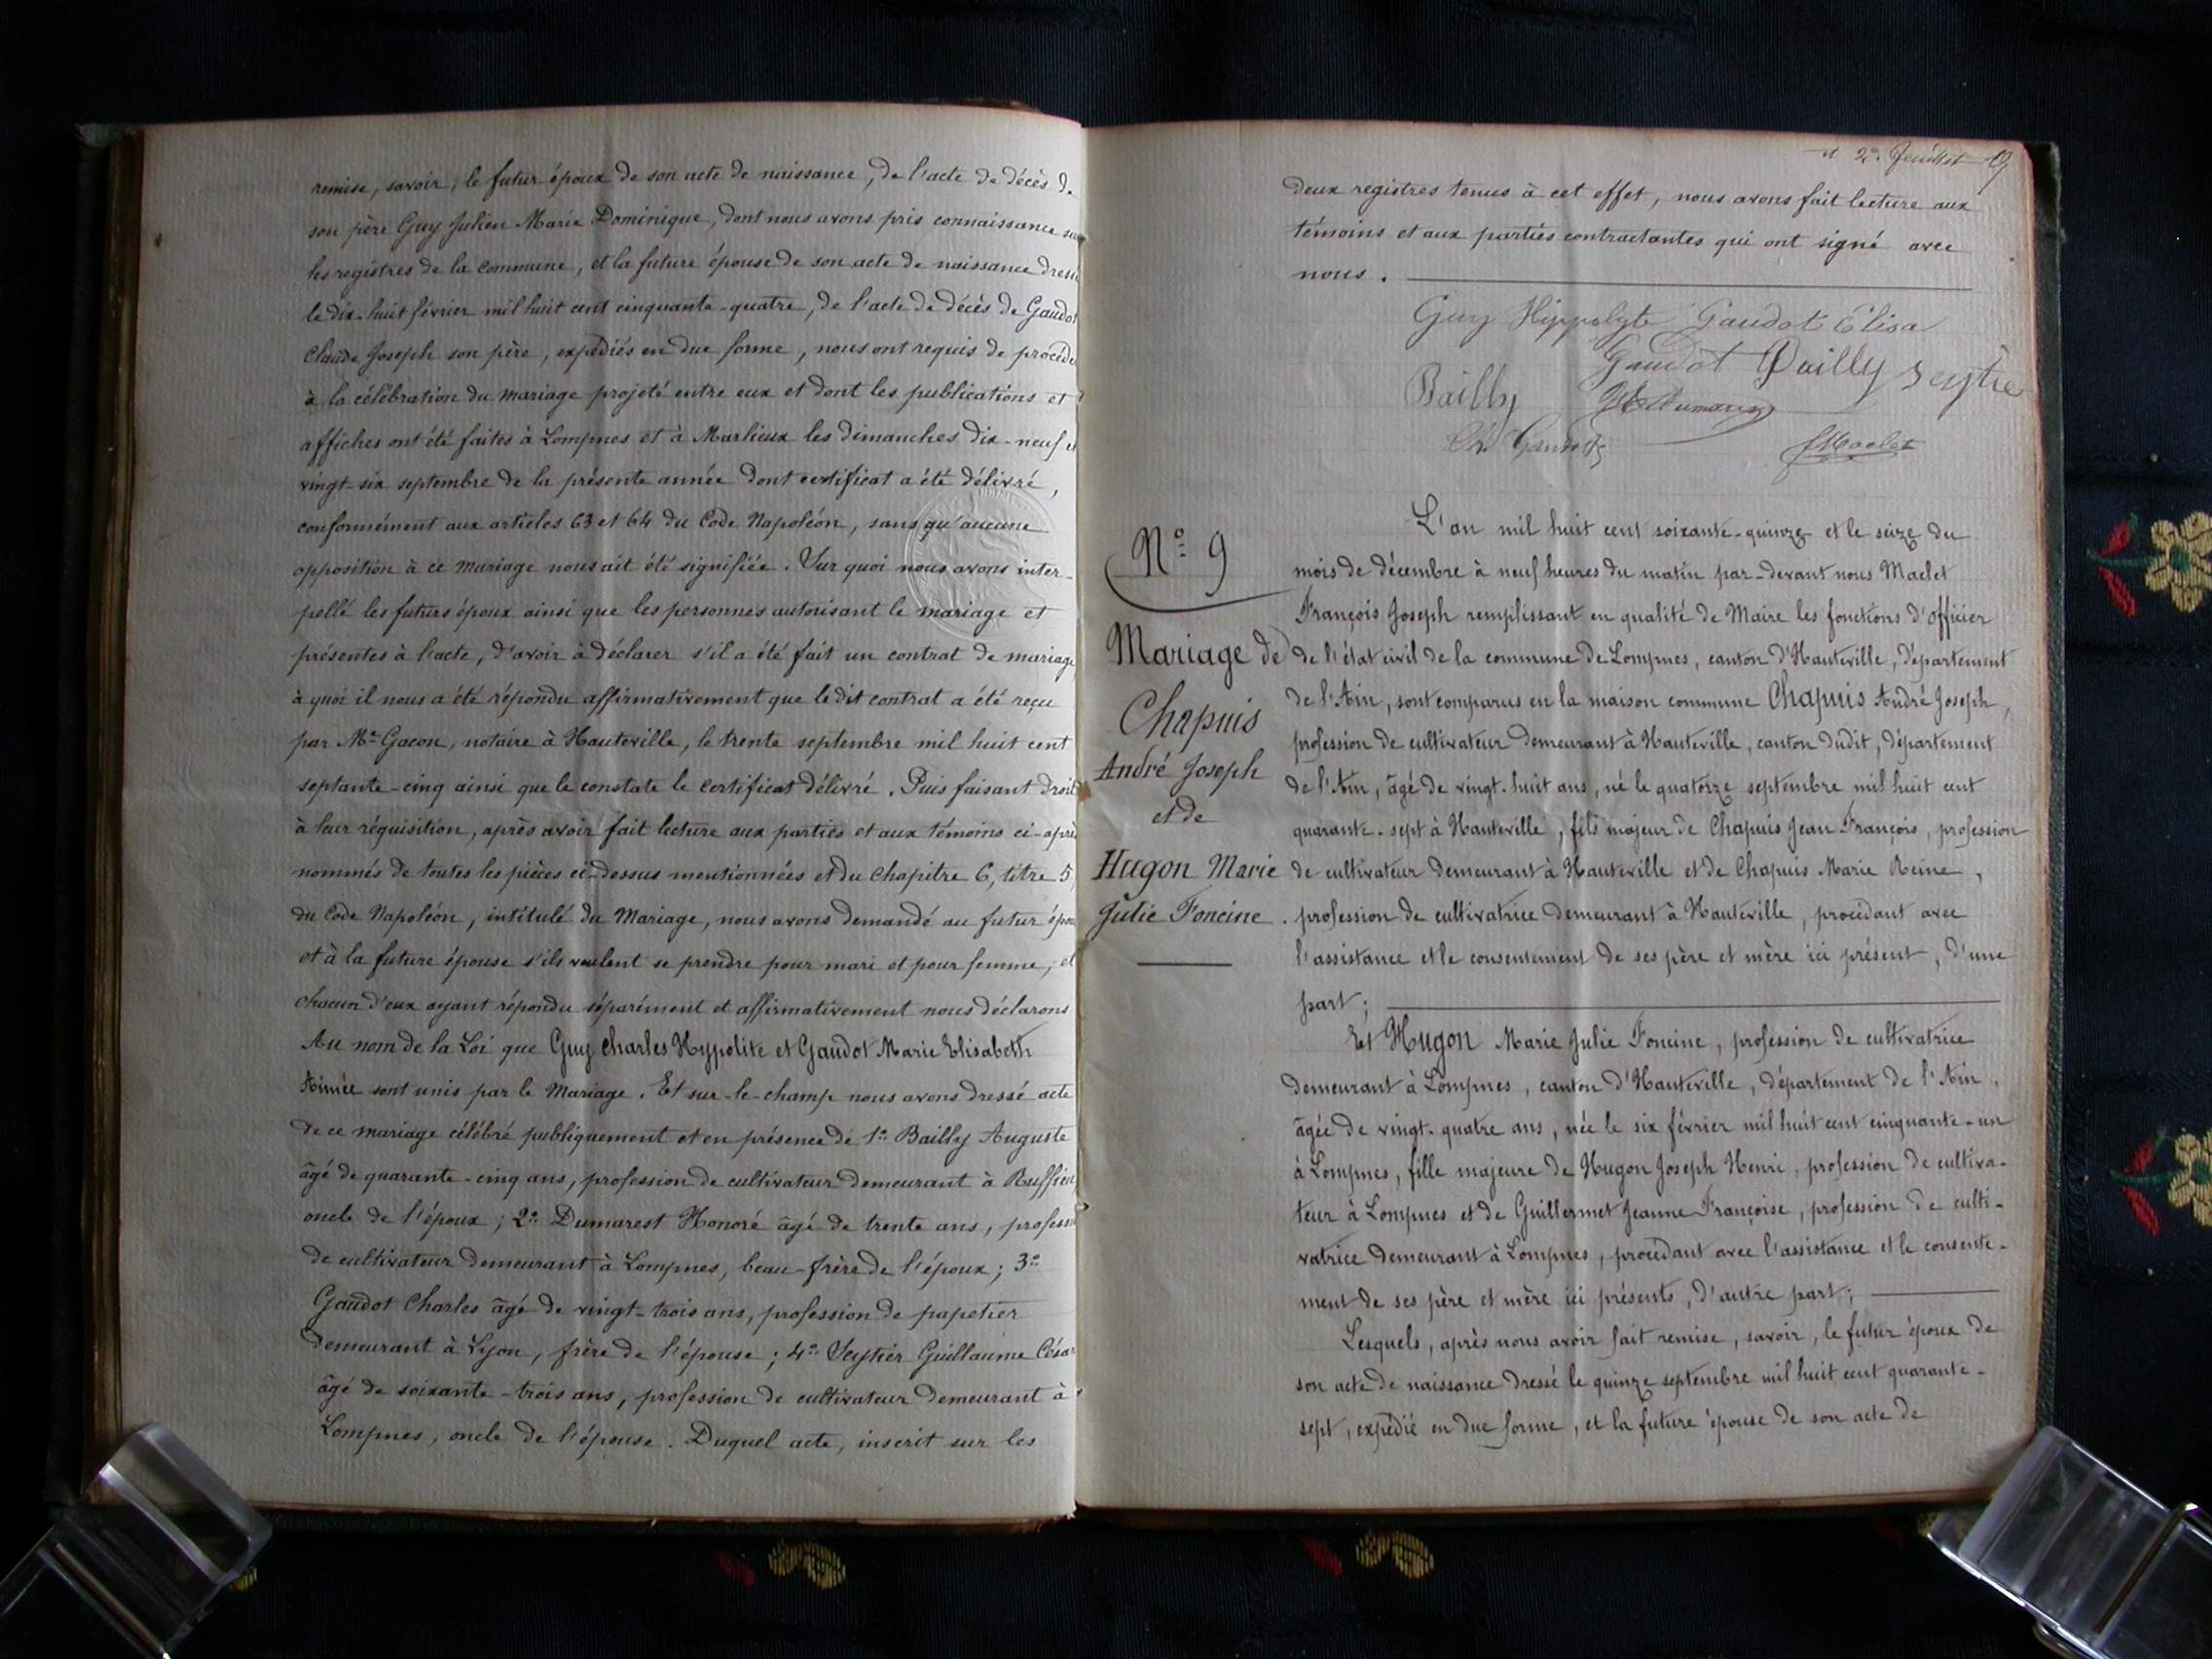 remise, savoir, le futur époux de son acte de naissance, de l'acte de décès de
son père Guy Julien Marie Dominique, dont nous avons pris connaissance sur
les registres de la commune, et la future épouse de son acte de naissance dressé
le dix-huit février mil huit cent cinquante-quatre, de l'acte de décès de Gaudot
Claude Joseph son père, expédiés en due forme, nous ont requis de procéder
à la célébration du mariage projeté entre eux et dont les publications et
affiches ont été faites à Lompnes et à Marlieux les dimanches dix-neuf et
vingt-six septembre de la présente année dont certificat a été délivré,
conformément aux articles 63 et 64 du Code Napoléon, sans qu'aucune
opposition à ce mariage nous ait été signifiée. Sur quoi nous avons inter-
pellé les futurs époux ainsi que les personnes autorisant le mariage et
présentes à l'acte, d'avoir à déclarer s'il a été fait un contrat de mariage
à quoi il nous a été répondu affirmativement que le dit contrat a été reçu
par Me Gacon, notaire à Hauteville, le trente septembre mil huit cent
septante-cinq ainsi que le constate le certificat délivré. Puis faisant droit
à leur réquisition, après avoir fait lecture aux parties et aux témoins ci-après
nommés de toutes les pièces ci-dessus mentionnées et du Chapitre 6, titre 5,
du Code Napoléon, intitulé du Mariage, nous avons demandé au futur époux
et à la future épouse s'ils veulent se prendre pour mari et pour femme, et
chacun d'eux ayant répondu séparément et affirmativement nous déclarons
Au nom de la Loi que Guy Charles Hypolite et Gaudot Marie Elisabeth
Aimée sont unis par le Mariage. Et sur-le-champ nous avons dressé acte
de ce mariage célébré publiquement et en présence de 1o Bailly Auguste
âgé de quarante-cinq ans, profession de cultivateur demeurant à Ruffieu
oncle de l'époux; 2o Dumarest Honoré âgé de trente ans, profession
de cultivateur demeurant à Lompnes, beau-frère de l'époux; 3o
Gaudot Charles âgé de vingt-trois ans, profession de papetier
demeurant à Lyon, frère de l'épouse; 4o Seytier Guillaume César
âgé de soixante-trois ans, profession de cultivateur demeurant à
Lompnes, oncle de l'épouse. Duquel acte, inscrit sur les
et 2e. feuillet 19
deux registres tenus à cet effet, nous avons fait lecture aux
témoins et aux parties contractantes qui ont signé avec
nous.
Guy Hippolyte Gaudot Elisa
Gaudot Bailly Seytie
Bailly
Ch Gaudot Maclet
No 9
Mariage de
Chapuis
André Joseph
et de
Hugon Marie
Julie Foncine.
L'an mil huit cent soixante-quinze et le seize du
mois de décembre à neuf heures du matin par-devant nous Maclet
François Joseph remplissant en qualité de Maire les fonctions d'officier
de l'état civil de la commune de Lompnes, canton d'Hauteville, département
de l'Ain, sont comparus en la maison commune Chapuis André Joseph,
profession de cultivateur demeurant à Hauteville, canton dudit, département
de l'Ain, âgé de vingt-huit ans, né le quatorze septembre mil huit cent
quarante-sept à Hauteville, fils majeur de Chapuis Jean François, profession
de cultivateur demeurant à Hauteville et de Chapuis Marie Reine,
profession de cultivatrice demeurant à Hauteville, procédant avec
l'assistance et le consentement de ses père et mère ici présent, d'une
part;
Et Hugon Marie Julie Foncine, profession de cultivatrice
demeurant à Lompnes, canton d'Hauteville, département de l'Ain,
âgée de vingt-quatre ans, née le six février mil huit cent cinquante-un
à Lompnes, fille majeure de Hugon Joseph Henri, profession de cultiva-
teur à Lompnes et de Guillermet Jeanne Françoise, profession de culti-
vatrice demeurant à Lompnes, procédant avec l'assistance et le consente-
ment de ses père et mère ici présents, d'autre part;
Lesquels, après nous avoir fait remise, savoir, le futur époux de
son acte de naissance dressé le quinze septembre mil huit cent quarante-
sept, expédié en due forme, et la future épouse de son acte de